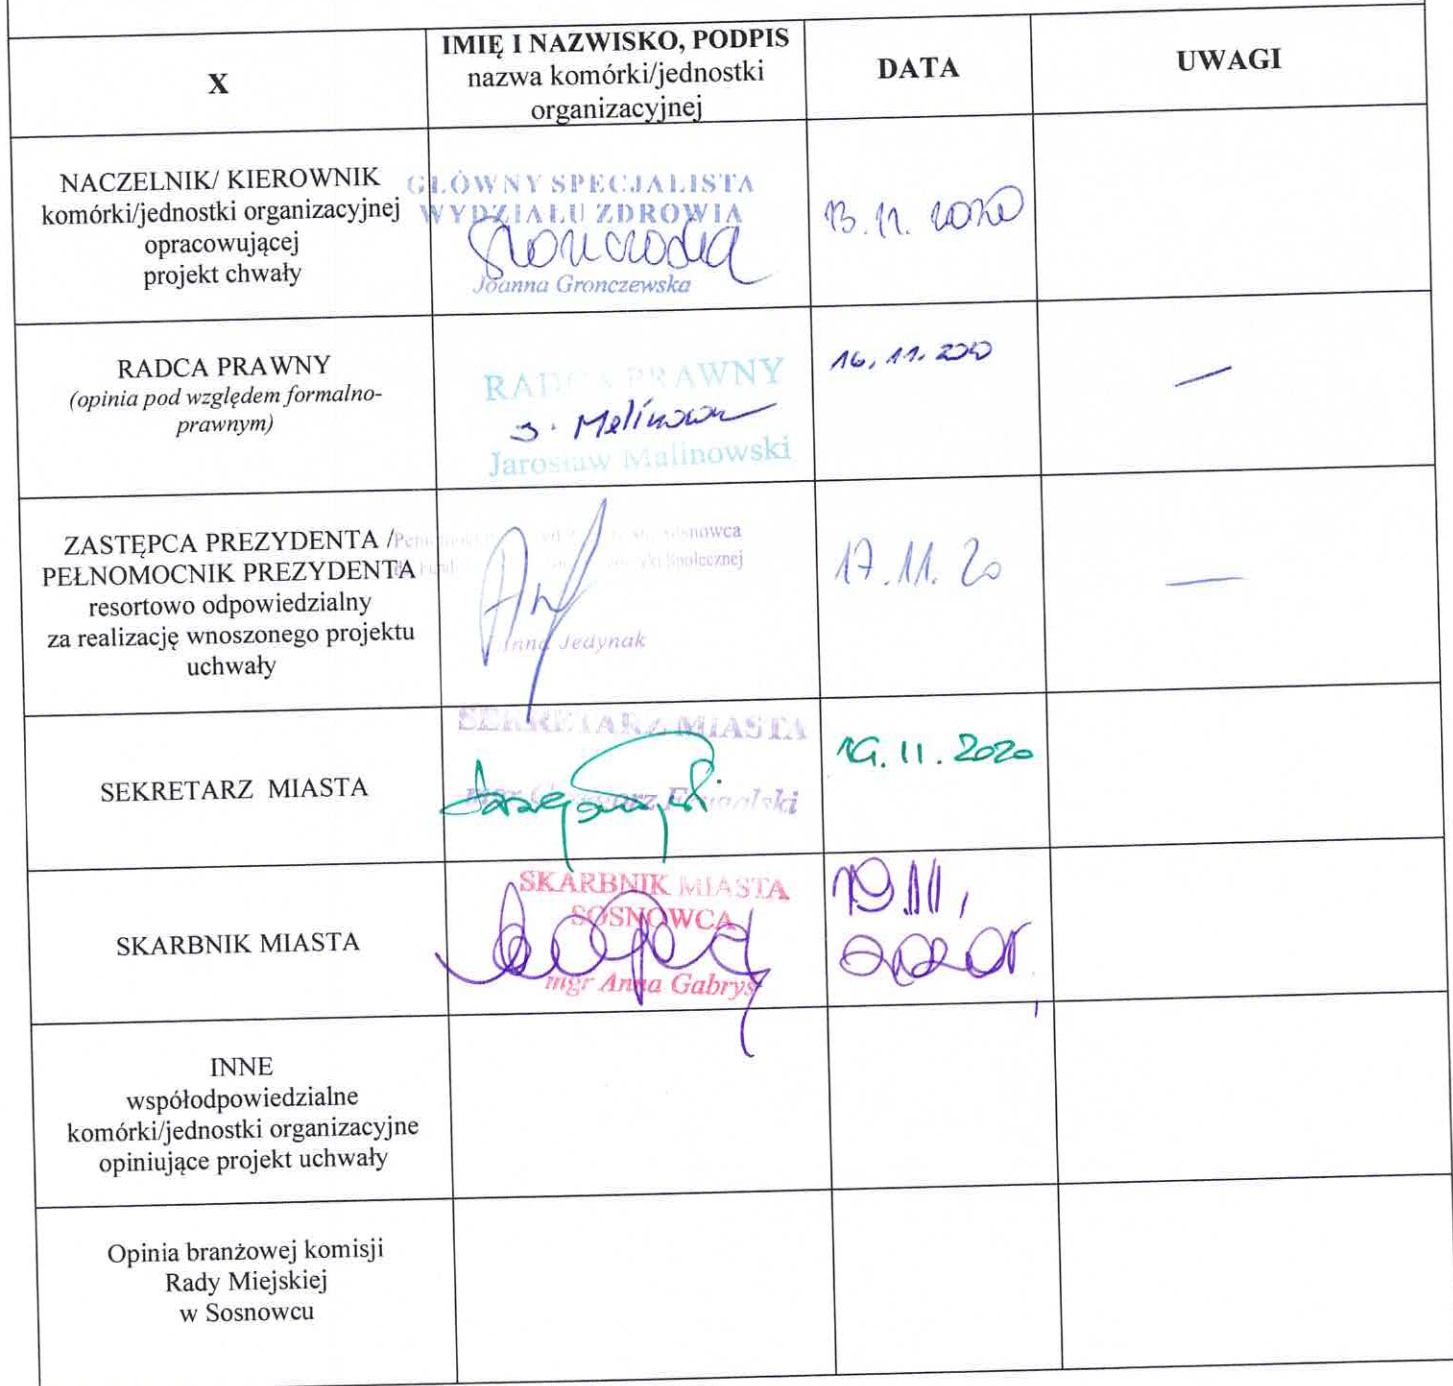 X
IMIĘ I NAZWISKO, PODPIS
nazwa komórki/jednostki
organizacyjnej
DATA
UWAGI
NACZELNIK/ KIEROWNIK
komórki/jednostki organizacyjnej
opracowującej
projekt chwały
GŁÓWNY SPECJALISTA
WYDZIAŁU ZDROWIA
Joanna Gronczewska
13.11.2020
RADCA PRAWNY
(opinia pod względem formalno-
prawnym)
RADCA PRAWNY
J. Malinow
Jarosław Malinowski
16.11.2020
—
ZASTĘPCA PREZYDENTA /
PEŁNOMOCNIK PREZYDENTA
resortowo odpowiedzialny
za realizację wnoszonego projektu
uchwały
Sosnowca
Społecznej
Anna Jedynak
17.11.20
—
SEKRETARZ MIASTA
SEKRETARZ MIASTA
mgr Grzegorz
19.11.2020
SKARBNIK MIASTA
SKARBNIK MIASTA
SOSNOWCA
mgr Anna Gabryś
19.11,
2020r.
INNE
współodpowiedzialne
komórki/jednostki organizacyjne
opiniujące projekt uchwały
Opinia branżowej komisji
Rady Miejskiej
w Sosnowcu